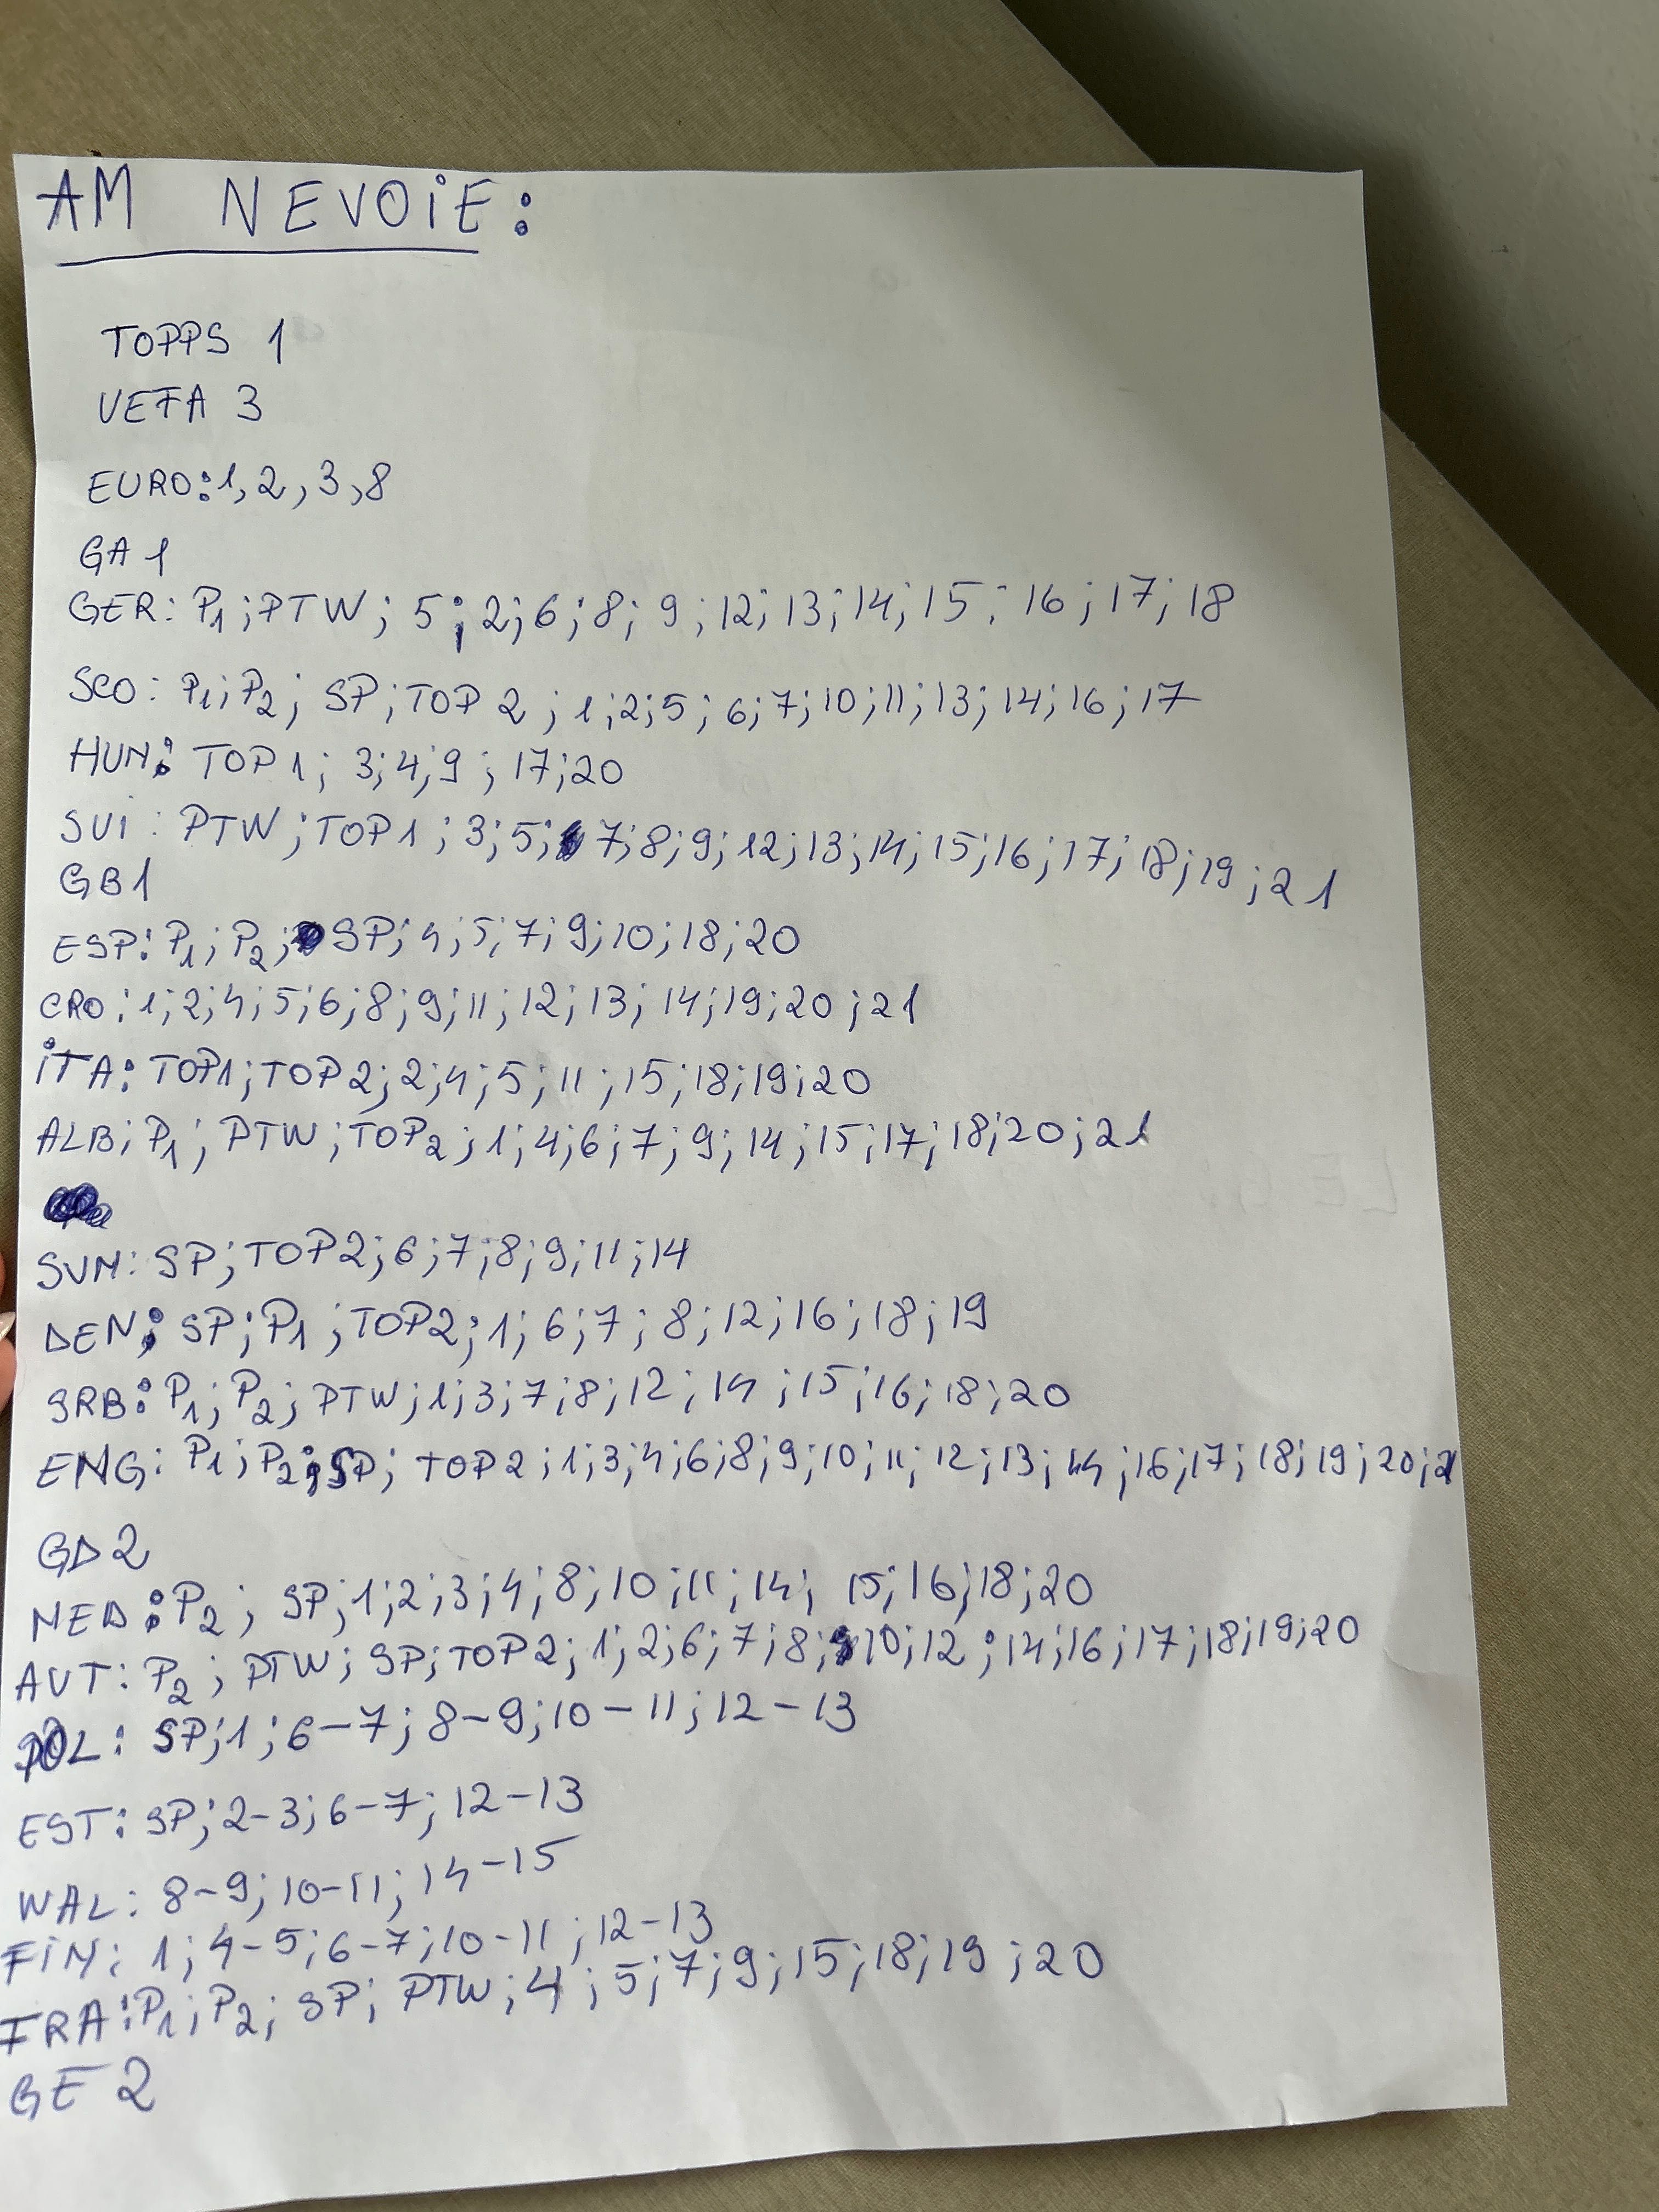 AM NEVOIE:
TOPPS 1
UEFA 3
EURO: 1, 2, 3, 8
GA 1
GER: P1; PTW; 5; 2; 6; 8; 9; 12; 13; 14; 15; 16; 17; 18
SCO: P1; P2; SP; TOP 2; 1; 2; 5; 6; 7; 10; 11; 13; 14; 16; 17
HUN: TOP 1; 3; 4; 9; 17; 20
SUI: PTW; TOP 1; 3; 5; 7; 8; 9; 12; 13; 14; 15; 16; 17; 18; 19; 21
GB1
ESP: P1; P2; SP; 4; 5; 7; 9; 10; 18; 20
CRO: 1; 2; 4; 5; 6; 8; 9; 11; 12; 13; 14; 19; 20; 21
ITA: TOP1; TOP 2; 2; 4; 5; 11; 15; 18; 19; 20
ALB: P1; PTW; TOP2; 1; 4; 6; 7; 9; 14; 15; 17; 18; 20; 21
SVN: SP; TOP 2; 6; 7; 8; 9; 11; 14
DEN: SP; P1; TOP2; 1; 6; 7; 8; 12; 16; 18; 19
SRB: P1; P2; PTW; 1; 3; 7; 8; 12; 14; 15; 16; 18; 20
ENG: P1; P2; SP; TOP 2; 1; 3; 4; 6; 8; 9; 10; 11; 12; 13; 14; 16; 17; 18; 19; 20;
GD 2
NED: P2; SP; 1; 2; 3; 4; 8; 10; 11; 14; 15; 16; 18; 20
AUT: P2; PTW; SP; TOP 2; 1; 2; 6; 7; 8; 10; 12; 14; 16; 17; 18; 19; 20
POL: SP; 1; 6-7; 8-9; 10-11; 12-13
EST: SP; 2-3; 6-7; 12-13
WAL: 8-9; 10-11; 14-15
FIN: 1; 4-5; 6-7; 10-11; 12-13
FRA: P1; P2; SP; PTW; 4; 5; 7; 9; 15; 18; 19; 20
GE 2